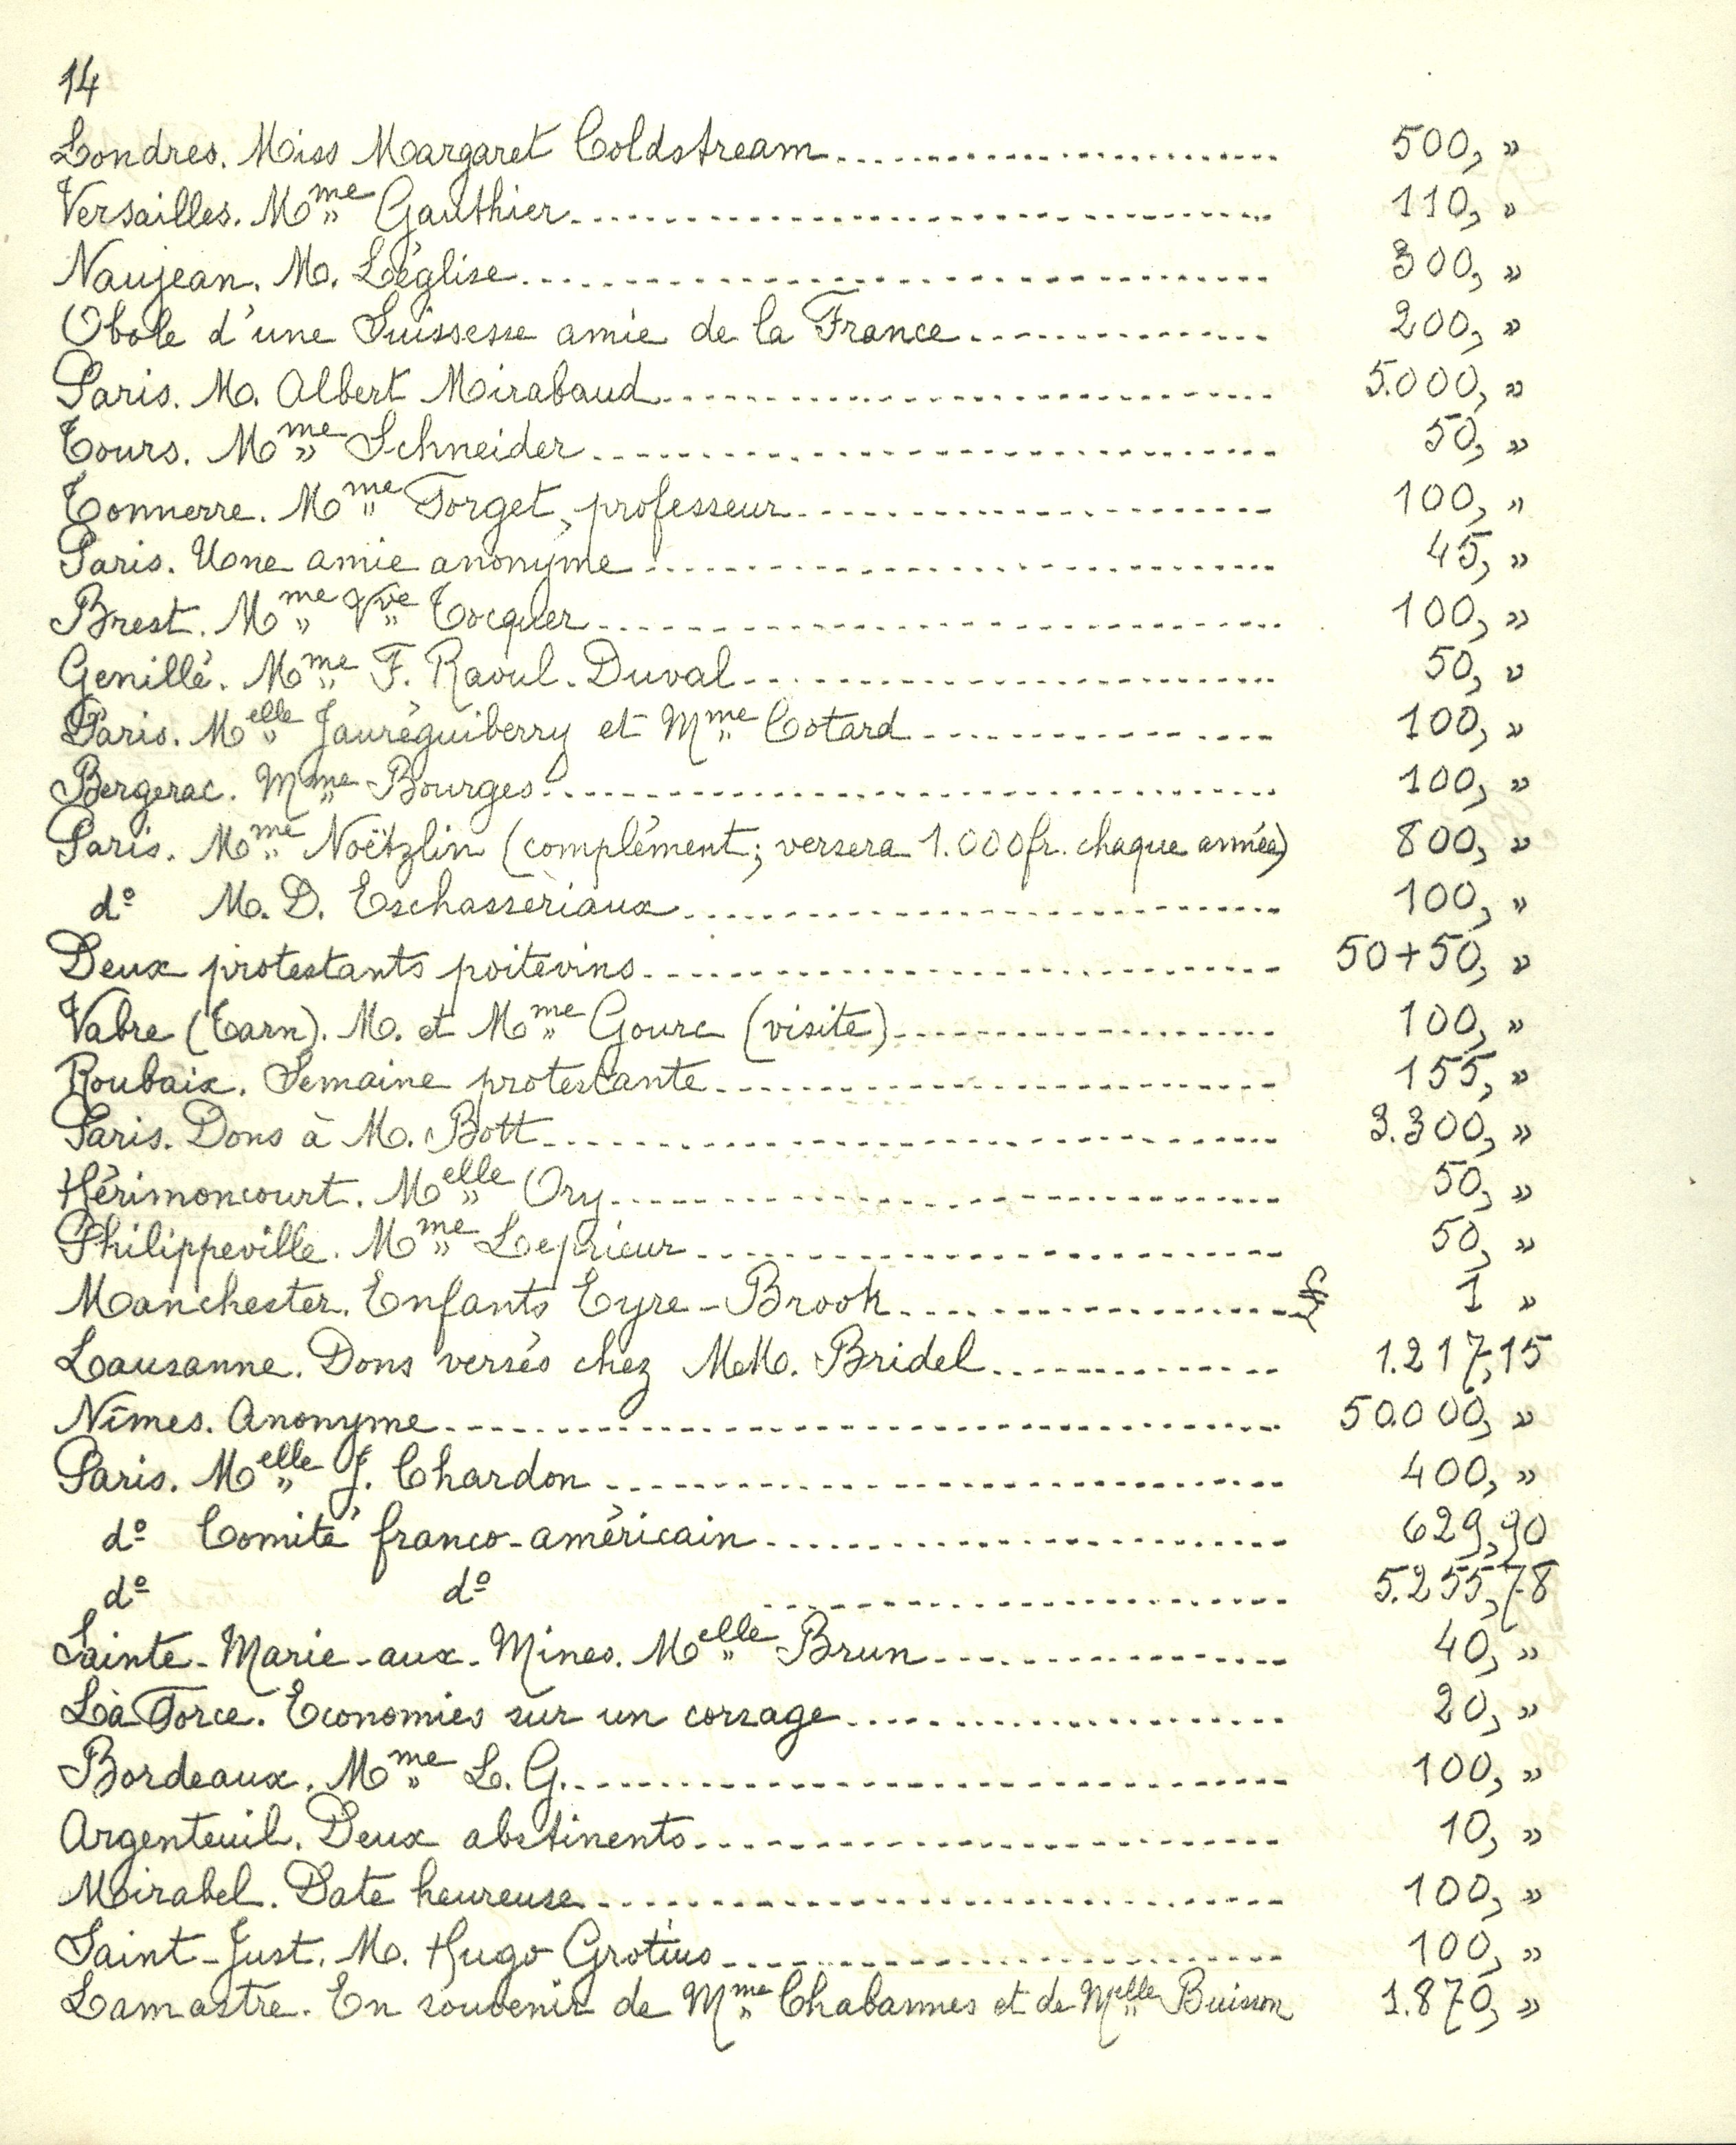 14
Londres. Miss Margaret Coldstream ........................ 500, »
Versailles. Mme Gauthier ........................ 110, »
Naujean. M. Léglise ........................ 300, »
Obole d'une Suissesse amie de la France ........................ 200, »
Paris. M. Albert Mirabaud ........................ 5.000, »
Tours. Mme Schneider ........................ 50, »
Tonnerre. Mme Forget, professeur ........................ 100, »
Paris. Une amie anonyme ........................ 45, »
Brest. Mme Vve Tocquer ........................ 100, »
Genillé. Mme F. Raoul-Duval ........................ 50, »
Paris. Melle Jauréguiberry et Mme Cotard ........................ 100, »
Bergerac. Mme Bourges ........................ 100, »
Paris. Mme Noëtzlin (complément; versera 1.000 fr. chaque année) 800, »
dº M. D. Eschassériaux ........................ 100, »
Deux protestants poitevins ........................ 50+50, »
Vabre (Tarn). M. et Mme Gourc (visite) ........................ 100, »
Roubaix. Semaine protestante ........................ 155, »
Paris. Dons à M. Bott ........................ 3.300, »
Hérimoncourt. Melle Ory ........................ 50, »
Philippeville. Mme Leprieur ........................ 50, »
Manchester. Enfants Eyre-Brook ........................ £ 1 »
Lausanne. Dons versés chez MM. Bridel ........................ 1.217,15
Nîmes. Anonyme ........................ 50.000, »
Paris. Melle J. Chardon ........................ 400, »
dº Comité franco-américain ........................ 629,90
dº dº ........................ 5.255,78
Sainte-Marie-aux-Mines. Melle Brun ........................ 40, »
La Force. Economies sur un corsage ........................ 20, »
Bordeaux. Mme L. G. ........................ 100, »
Argenteuil. Deux abstinents ........................ 10, »
Mirabel. Date heureuse ........................ 100, »
Saint-Just. M. Hugo Grotius ........................ 100, »
Lamastre. En souvenir de Mme Chabannes et de Melle Buisson 1.870, »